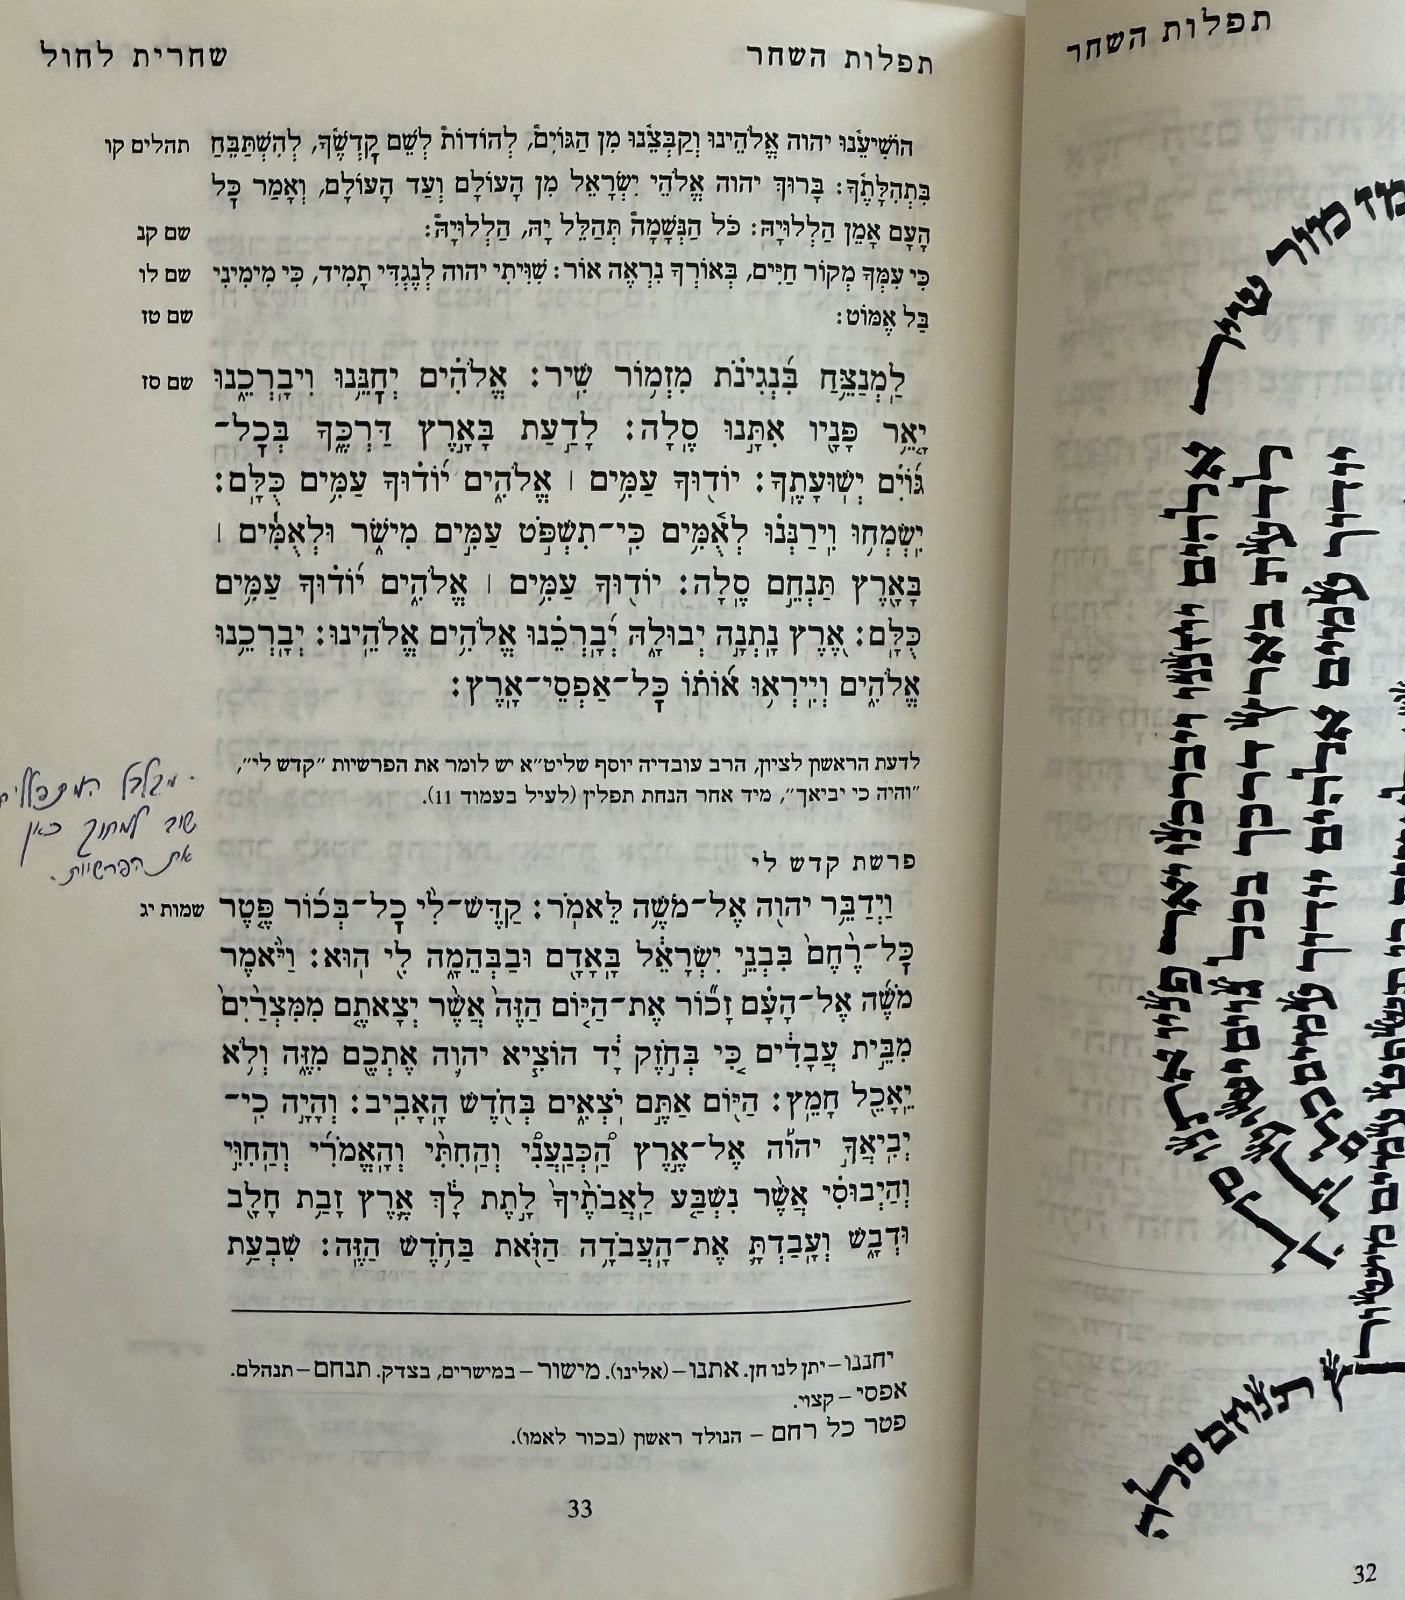 תפלות השחר
מזמור שיר
אלהים יחננו ויברכנו יאר פניו אתנו סלה
לדעת בארץ דרכך בכל גוים ישועתך
יודוך עמים אלהים יודוך עמים כלם
כי תשפט עמים מישור
תנחם סלה
32
תפלות השחר
שחרית לחול
הוֹשִׁיעֵנוּ יהוה אֱלֹהֵינוּ וְקַבְּצֵנוּ מִן הַגּוֹיִם, לְהוֹדוֹת לְשֵׁם קָדְשֶׁךָ, לְהִשְׁתַּבֵּחַ תהלים קו
בִּתְהִלָּתֶךָ: בָּרוּךְ יהוה אֱלֹהֵי יִשְׂרָאֵל מִן הָעוֹלָם וְעַד הָעוֹלָם, וְאָמַר כָּל
הָעָם אָמֵן הַלְלוּיָהּ: כֹּל הַנְּשָׁמָה תְּהַלֵּל יָהּ, הַלְלוּיָהּ: שם קנ
כִּי עִמְּךָ מְקוֹר חַיִּים, בְּאוֹרְךָ נִרְאֶה אוֹר: שִׁוִּיתִי יהוה לְנֶגְדִּי תָמִיד, כִּי מִימִינִי שם לו
בַּל אֶמּוֹט: שם טז
לַמְנַצֵּחַ בִּנְגִינֹת מִזְמוֹר שִׁיר: אֱלֹהִים יְחָנֵּנוּ וִיבָרְכֵנוּ שם סז
יָאֵר פָּנָיו אִתָּנוּ סֶלָה: לָדַעַת בָּאָרֶץ דַּרְכֶּךָ בְּכָל־
גּוֹיִם יְשׁוּעָתֶךָ: יוֹדוּךָ עַמִּים ׀ אֱלֹהִים יוֹדוּךָ עַמִּים כֻּלָּם:
יִשְׂמְחוּ וִירַנְּנוּ לְאֻמִּים כִּי־תִשְׁפֹּט עַמִּים מִישֹׁר וּלְאֻמִּים ׀
בָּאָרֶץ תַּנְחֵם סֶלָה: יוֹדוּךָ עַמִּים ׀ אֱלֹהִים יוֹדוּךָ עַמִּים
כֻּלָּם: אֶרֶץ נָתְנָה יְבוּלָהּ יְבָרְכֵנוּ אֱלֹהִים אֱלֹהֵינוּ: יְבָרְכֵנוּ
אֱלֹהִים וְיִירְאוּ אוֹתוֹ כָּל־אַפְסֵי־אָרֶץ:
לדעת הראשון לציון, הרב עובדיה יוסף שליט״א יש לומר את הפרשיות ״קדש לי״,
״והיה כי יביאך״, מיד אחר הנחת תפלין (לעיל בעמוד 11).
מבלבל המתפללים
שוב למחוק כאן
את הפרשיות.
פרשת קדש לי
וַיְדַבֵּר יהוה אֶל־מֹשֶׁה לֵּאמֹר: קַדֶּשׁ־לִי כָל־בְּכוֹר פֶּטֶר שמות יג
כָּל־רֶחֶם בִּבְנֵי יִשְׂרָאֵל בָּאָדָם וּבַבְּהֵמָה לִי הוּא: וַיֹּאמֶר
מֹשֶׁה אֶל־הָעָם זָכוֹר אֶת־הַיּוֹם הַזֶּה אֲשֶׁר יְצָאתֶם מִמִּצְרַיִם
מִבֵּית עֲבָדִים כִּי בְּחֹזֶק יָד הוֹצִיא יהוה אֶתְכֶם מִזֶּה וְלֹא
יֵאָכֵל חָמֵץ: הַיּוֹם אַתֶּם יֹצְאִים בְּחֹדֶשׁ הָאָבִיב: וְהָיָה כִי־
יְבִיאֲךָ יהוה אֶל־אֶרֶץ הַכְּנַעֲנִי וְהַחִתִּי וְהָאֱמֹרִי וְהַחִוִּי
וְהַיְבוּסִי אֲשֶׁר נִשְׁבַּע לַאֲבֹתֶיךָ לָתֶת לָךְ אֶרֶץ זָבַת חָלָב
וּדְבָשׁ וְעָבַדְתָּ אֶת־הָעֲבֹדָה הַזֹּאת בַּחֹדֶשׁ הַזֶּה: שִׁבְעַת
יחננו – יתן לנו חן. אתנו – (אלינו). מישור – במישרים, בצדק. תנחם – תנהלם.
אפסי – קצוי.
פטר כל רחם – הנולד ראשון (בכור לאמו).
33